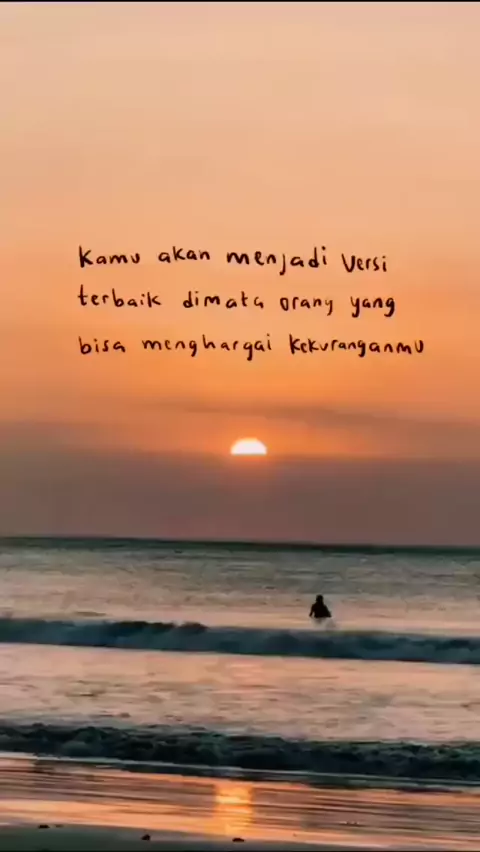 Kamu akan menjadi Versi
terbaik dimata orang yang
bisa menghargai kekuranganmu